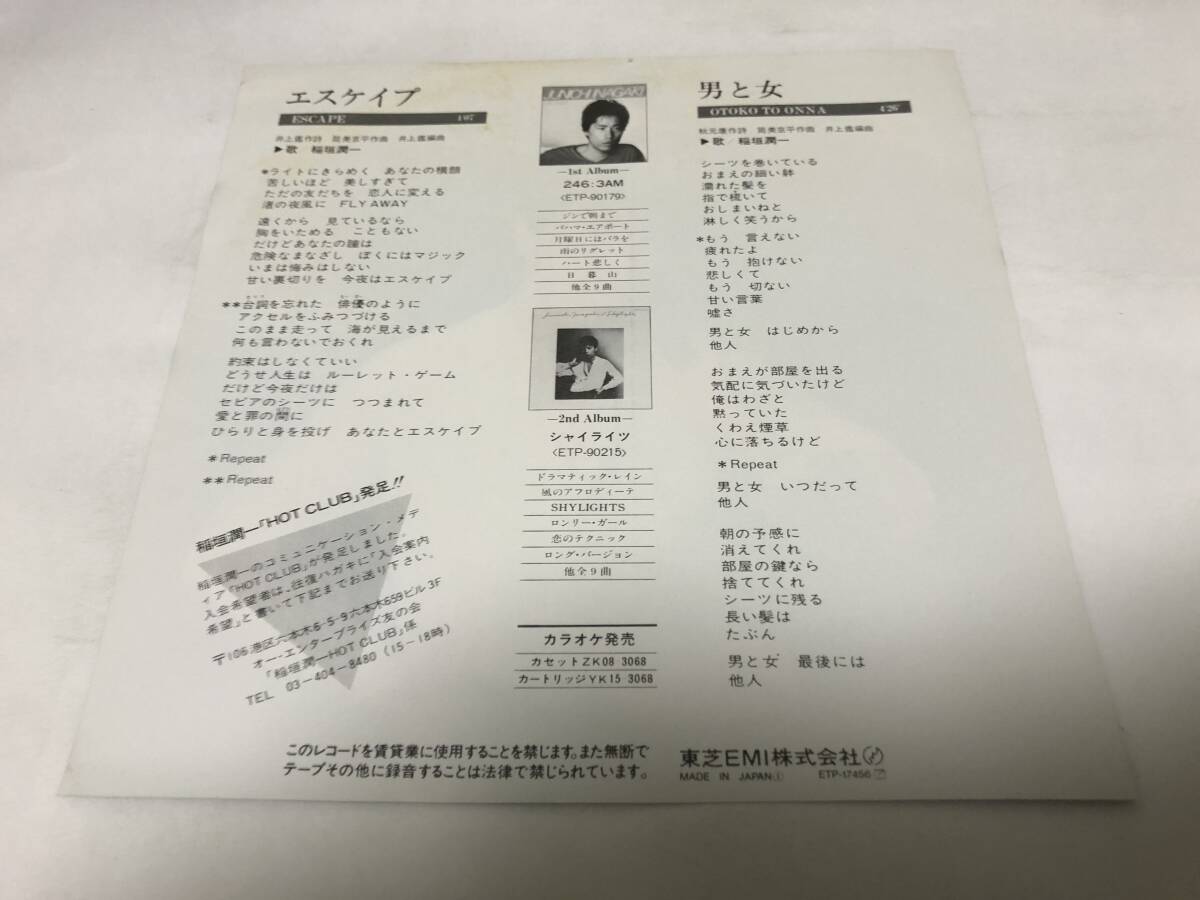 エスケイプ
ESCAPE 4'07
井上鑑作詩 筒美京平作曲 井上鑑編曲
▶歌 稲垣潤一
*ライトにきらめく あなたの横顔
苦しいほど 美しすぎて
ただの友だちを 恋人に変える
渚の夜風に FLY AWAY
遠くから 見ているなら
胸をいためる こともない
だけどあなたの瞳は
危険なまなざし ぼくにはマジック
いまは悔みはしない
甘い裏切りを 今夜はエスケイプ
**台詞を忘れた 俳優のように
アクセルをふみつづける
このまま走って 海が見えるまで
何も言わないでおくれ
約束はしなくていい
どうせ人生は ルーレット・ゲーム
だけど今夜だけは
セピアのシーツに つつまれて
愛と罪の間に
ひらりと身を投げ あなたとエスケイプ
*Repeat
**Repeat
稲垣潤一「HOT CLUB」発足!!
稲垣潤一のコミュニケーション・メデ
ィア「HOT CLUB」が発足しました。
入会希望者は、往復ハガキに「入会案内
希望」と書いて下記までお送り下さい。
〒106港区六本木6-5-9六本木659ビル3F
オー・エンタープライズ友の会
「稲垣潤一HOT CLUB」係
TEL 03-404-8480 (15-18時)
JUNICHI INAGAKI
—1st Album—
246:3AM
<ETP-90179>
ジンで朝まで
バハマ・エアポート
月曜日にはバラを
雨のリグレット
ハート悲しく
日暮山
他全9曲
Junichi Inagaki / Shylights
—2nd Album—
シャイライツ
<ETP-90215>
ドラマティック・レイン
風のアフロディーテ
SHYLIGHTS
ロンリー・ガール
恋のテクニック
ロング・バージョン
他全9曲
カラオケ発売
カセットZK08 3068
カートリッジYK15 3068
男と女
OTOKO TO ONNA 4'26"
秋元康作詩 筒美京平作曲 井上鑑編曲
▶歌/稲垣潤一
シーツを巻いている
おまえの細い躰
濡れた髪を
指で梳いて
おしまいねと
淋しく笑うから
*もう 言えない
疲れたよ
もう 抱けない
悲しくて
もう 切ない
甘い言葉
嘘さ
男と女 はじめから
他人
おまえが部屋を出る
気配に気づいたけど
俺はわざと
黙っていた
くわえ煙草
心に落ちるけど
*Repeat
男と女 いつだって
他人
朝の予感に
消えてくれ
部屋の鍵なら
捨ててくれ
シーツに残る
長い髪は
たぶん
男と女 最後には
他人
このレコードを賃貸業に使用することを禁じます。また無断で
テープその他に録音することは法律で禁じられています。
東芝EMI株式会社
MADE IN JAPAN ETP-17456